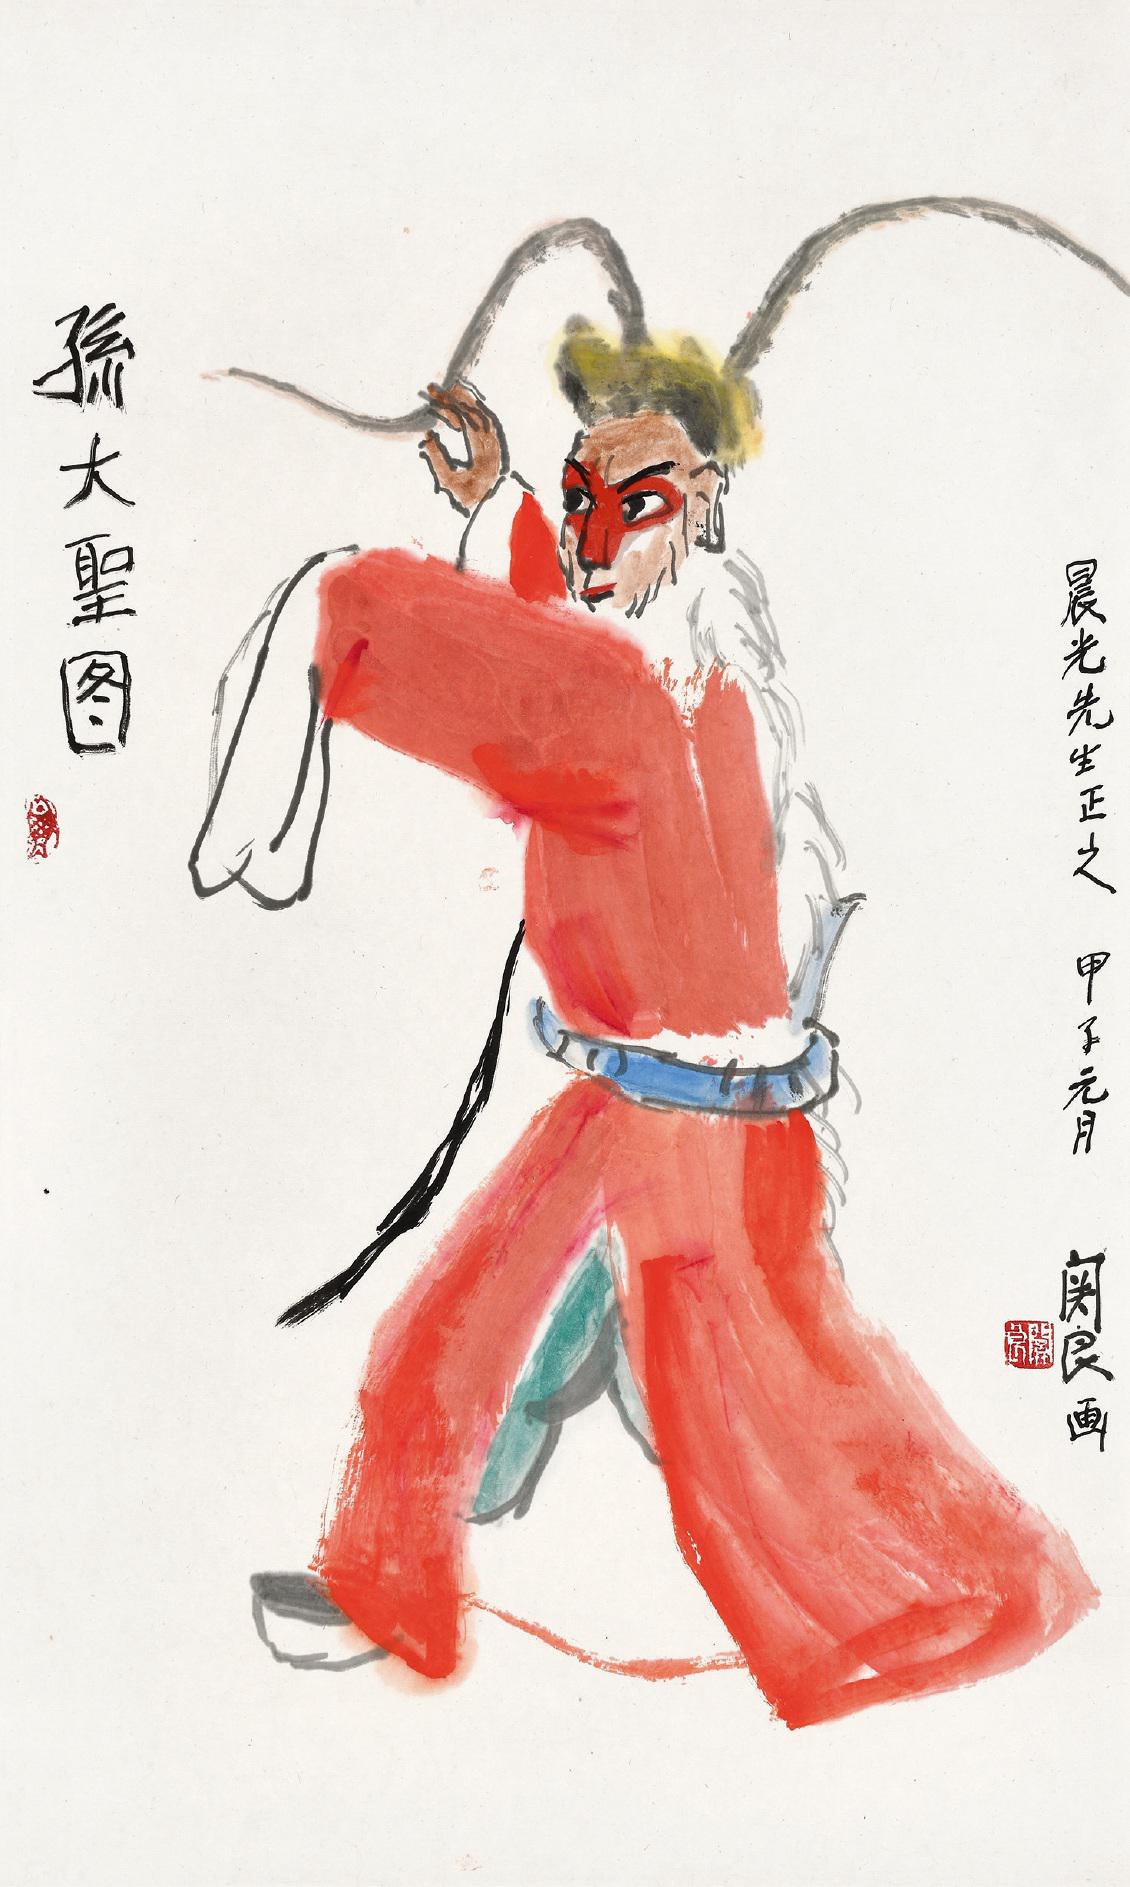 孫大聖图
晨光先生正之 甲子元月
関良画
関良